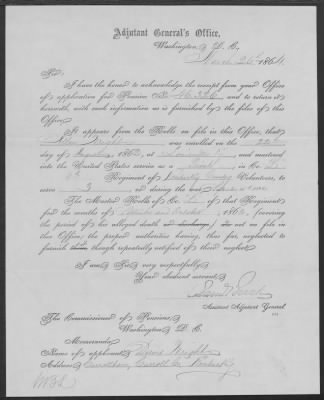 Adjutant General's Office,
Washington, D. C.,
March 26th, 1864.
Sir:
I have the honor to acknowledge the receipt from your Office
of application for Pension No. and to return it
herewith, with such information as is furnished by the files of this
Office.
It appears from the Rolls on file in this Office, that
Wright was enrolled on the 22nd
day of 1862, at and mustered
into the United States service as a in Co.
Regiment of Kentucky Cavalry Volunteers, to
serve 3 or during the war,
The Muster Rolls of Co. of that Regiment
for the months of September and October, 1862, (covering
the period of his alleged death or discharge,) are not on file in
this Office, the proper authorities having, thus far, neglected to
furnish though repeatedly notified of their neglect.
I am, Sir, very respectfully,
Your obedient servant,
Assistant Adjutant General.
The Commissioner of Pensions,
Washington, D. C.
Memoranda:
Name of applicant, Wright
Address, Carrollton, Carroll Co. Kentucky